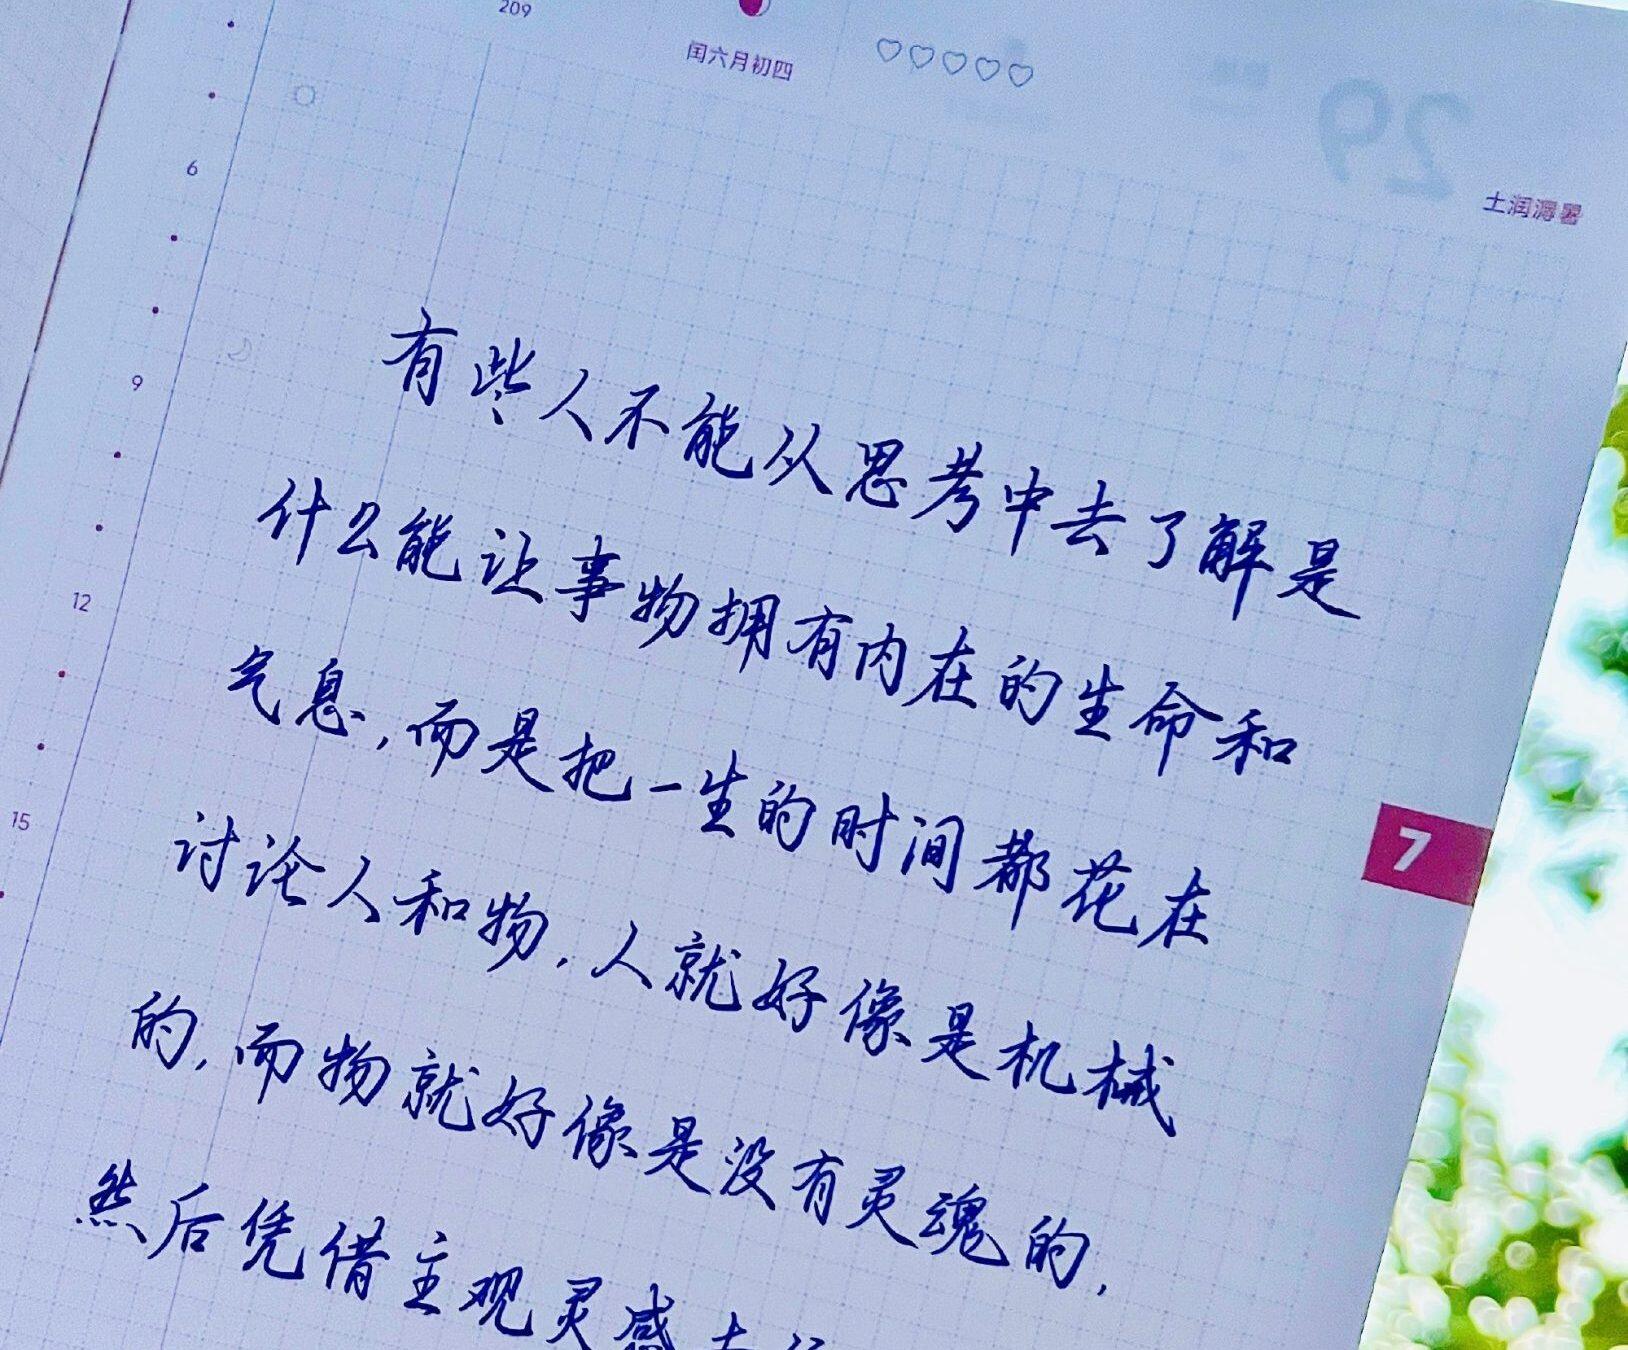 209
闰六月初四
♡♡♡♡♡
29
土润溽暑
6
9
12
15
7
有些人不能从思考中去了解是
什么能让事物拥有内在的生命和
气息,而是把一生的时间都花在
讨论人和物,人就好像是机械
的,而物就好像是没有灵魂的,
然后凭借主观灵感去